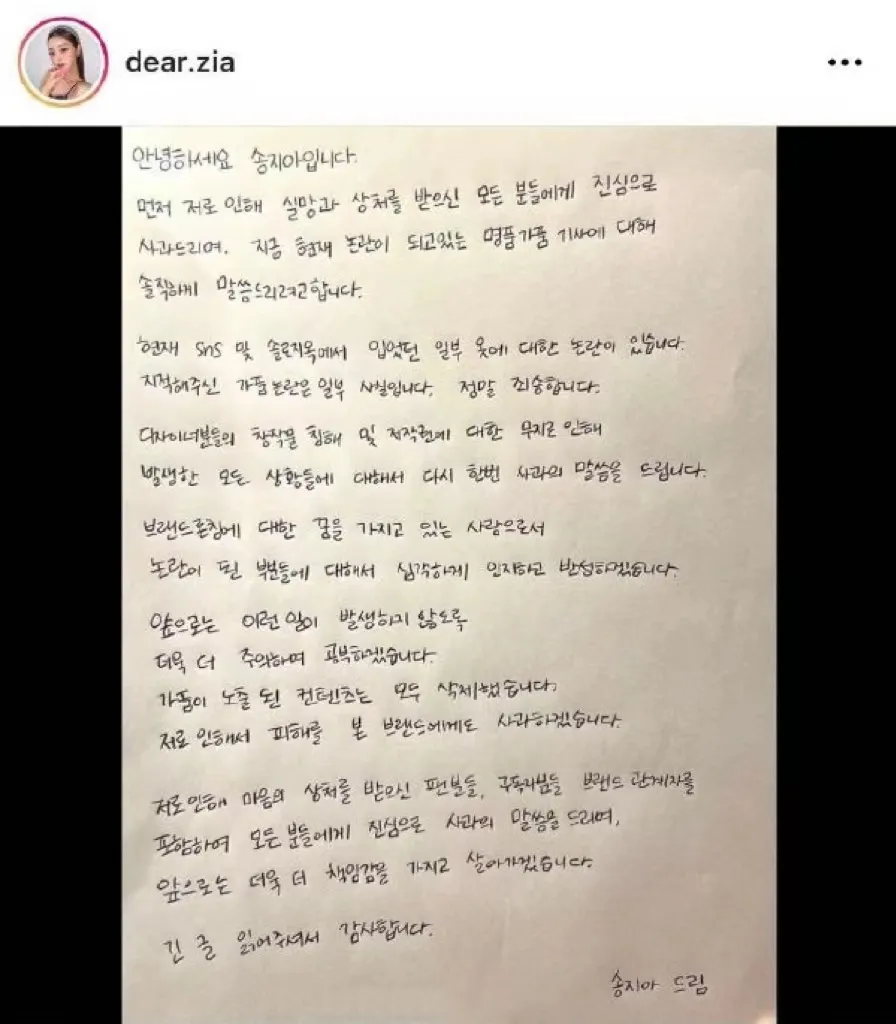 dear.zia
안녕하세요 송지아입니다.
먼저 저로 인해 실망과 상처를 받으신 모든 분들에게 진심으로
사과드리며, 지금 현재 논란이 되고있는 명품가품 기사에 대해
솔직하게 말씀드리려고합니다.
현재 sns 및 솔로지옥에서 입었던 일부 옷에 대한 논란이 있습니다.
지적해주신 가품논란은 일부 사실입니다. 정말 죄송합니다.
디자이너분들의 창작물 침해 및 저작권에 대한 무지로 인해
발생한 모든 상황들에 대해서 다시 한번 사과의 말씀을 드립니다.
브랜드론칭에 대한 꿈을 가지고 있는 사람으로서
논란이 된 부분들에 대해서 심각하게 인지하고 반성하겠습니다.
앞으로는 이런 일이 발생하지 않도록
더욱 더 주의하며 공부하겠습니다.
가품이 노출 된 컨텐츠는 모두 삭제했습니다.
저로 인해서 피해를 본 브랜드에게도 사과하겠습니다.
저로인해 마음의 상처를 받으신 팬분들, 구독자분들 브랜드 관계자를
포함하여 모든 분들에게 진심으로 사과의 말씀을 드리며,
앞으로는 더욱 더 책임감을 가지고 살아가겠습니다.
긴 글 읽어주셔서 감사합니다.
송지아 드림